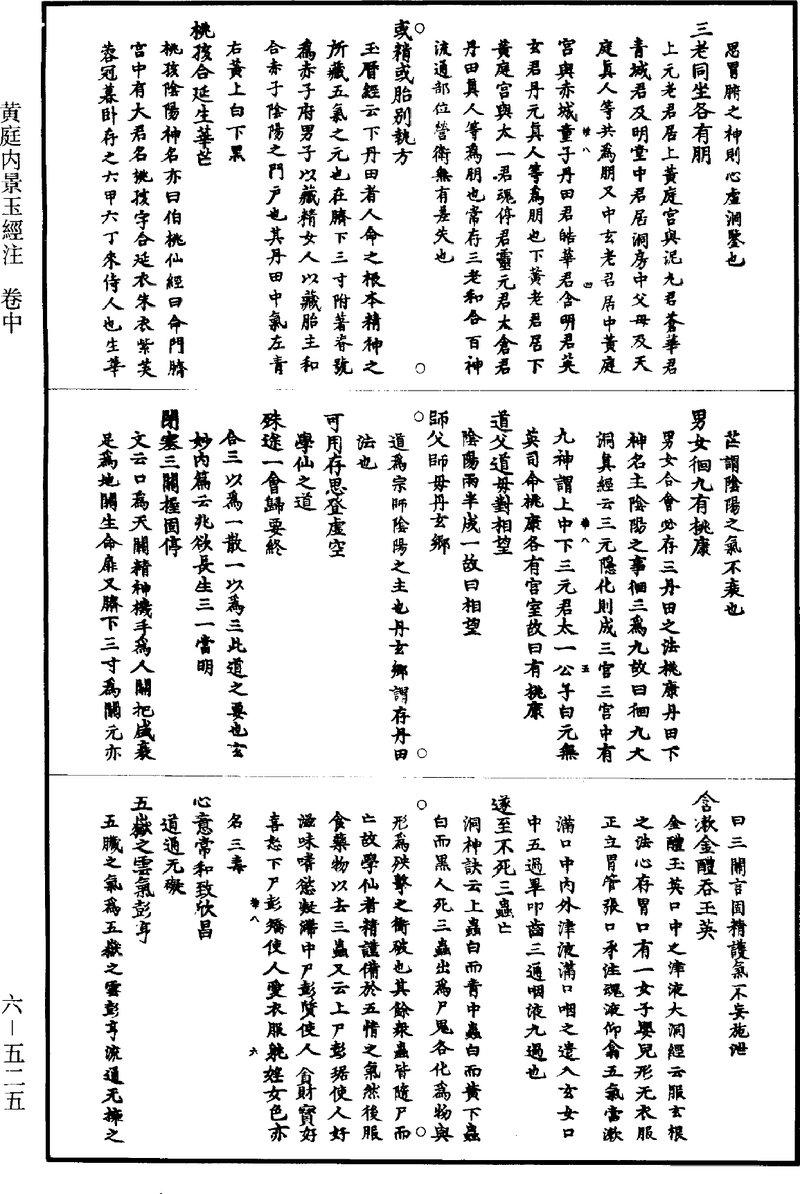 黄庭内景玉經注　卷中
六－五二五
思胃腑之神則心虛洞鑒也
三老同坐各有朋
上元老君居上黃庭宮與泥九君蒼華君
青城君及明堂中君居洞房中父母及天
庭真人等共為朋又中玄老君居中黃庭
宮與赤城童子丹田君皓華君含明君英
玄君丹元真人等為朋也下黃老君居下
黃庭宮與太一君魂停君靈元君太倉君
丹田真人等為朋也常存三老和合百神
流通部位營衛無有差失也
或精或胎別執方
玉曆經云下丹田者人命之根本精神之
所藏五氣之元也在臍下三寸附著脊號
為赤子府男子以藏精女人以藏胎主和
合赤子陰陽之門戶也其丹田中氣左青
右黃上白下黑
桃孩合延生華芒
桃孩陰陽神名亦曰伯桃仙經曰命門臍
宮中有大君名桃孩字合延衣朱衣紫芙
蓉冠暮臥存之六甲六丁來侍人也生華
芒謂陰陽之氣不衰也
男女徊九有桃康
男女合會必存三丹田之法桃康丹田下
神名主陰陽之事徊三為九故曰徊九大
洞真經云三元隱化則成三宮三宮中有
九神謂上中下三元君太一公子白元無
英司命桃康各有宮室故曰有桃康
道父道母對相望
陰陽兩半成一故曰相望
師父師母丹玄鄉
道為宗師陰陽之主也丹玄鄉謂存丹田
法也
可用存思登虛空
學仙之道
殊途一會歸要終
合三以為一散一以為三此道之要也玄
妙內篇云兆欲長生三一當明
閉塞三關握固停
文云口為天關精神機手為人關把盛衰
足為地關生命扉又臍下三寸為關元亦
曰三關言固精護氣不妄施泄
含漱金醴吞玉英
金醴玉英口中之津液大洞經云服玄根
之法心存胃口有一女子嬰兒形无衣服
正立胃管張口承注魂液仰翕五氣當漱
滿口中內外津液滿口咽之遣入玄女口
中五過畢叩齒三通咽液九過也
遂至不死三蟲亡
洞神訣云上蟲白而青中蟲白而黃下蟲
白而黑人死三蟲出為尸鬼各化為物與
形為殃擊之衝破也其餘衆蟲皆隨尸而
亡故學仙者精謹備於五情之氣然後服
食藥物以去三蟲又云上尸彭琚使人好
滋味嗜慾癡滯中尸彭質使人貪財寶好
喜怒下尸彭矯使人愛衣服躭婬女色亦
名三毒
心意常和致欣昌
道通无礙
五嶽之雲氣彭亨
五臟之氣為五嶽之雲彭亨流通无擁之